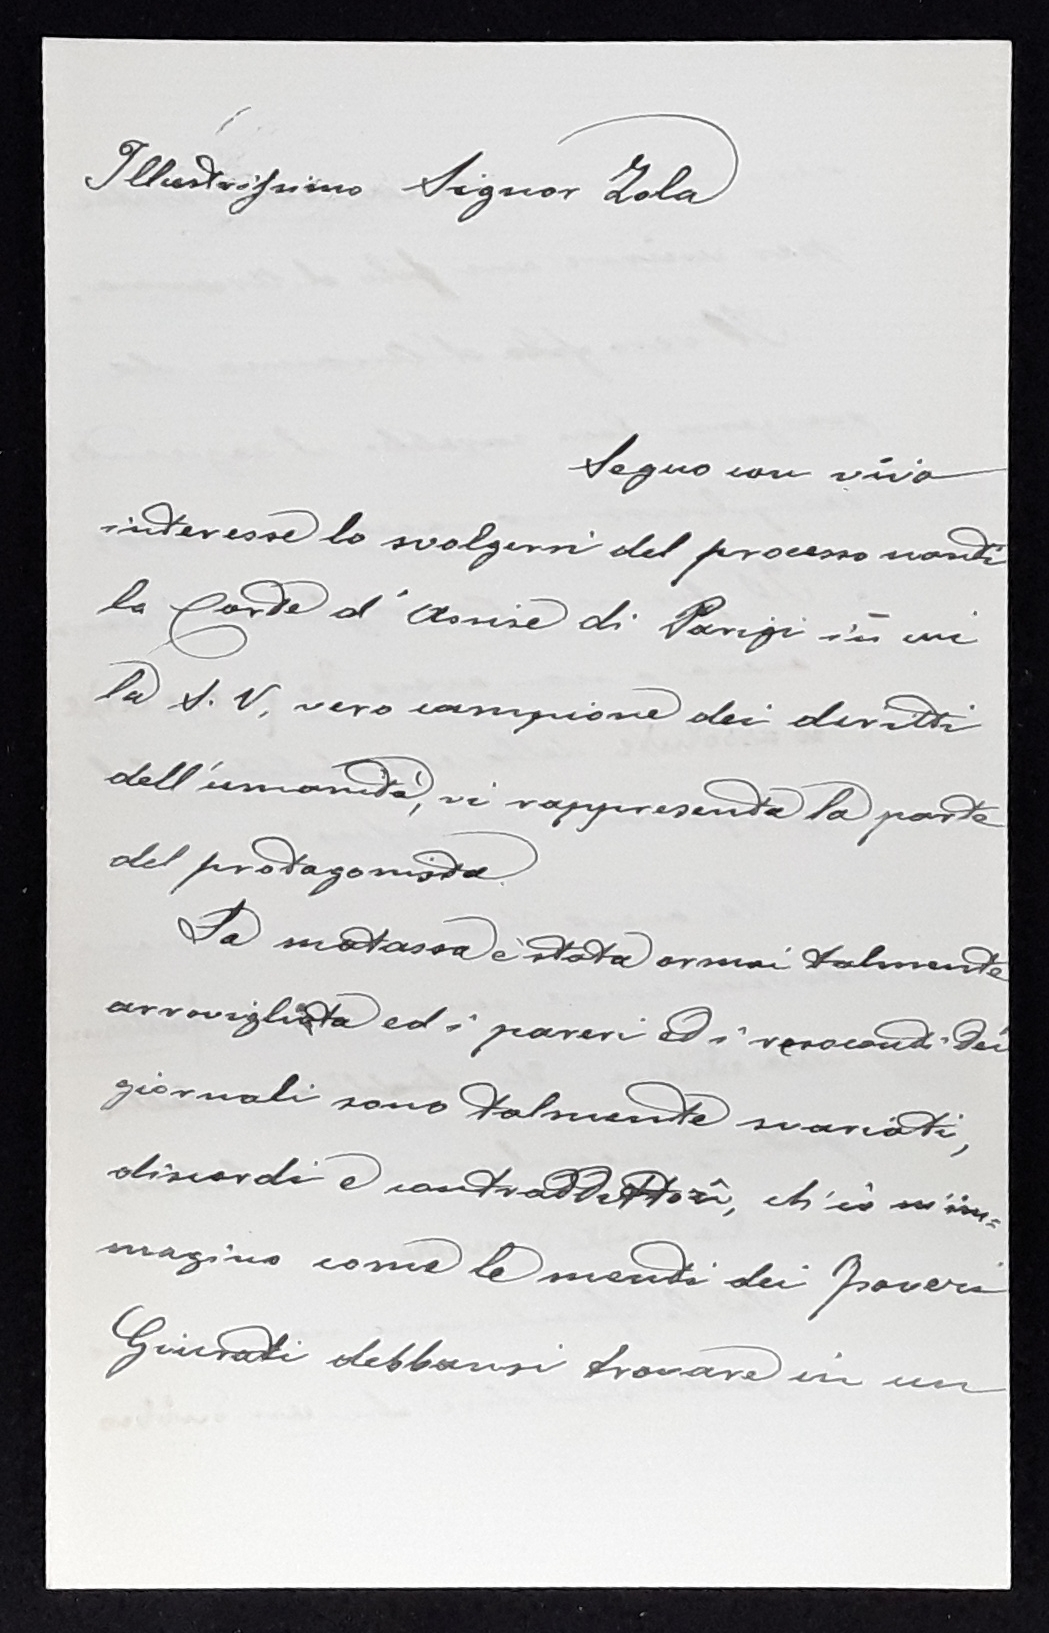 Illustrissimo Signor Zola
Seguo con vivo
interesse lo svolgersi del processo nanti
la Corte d'Assise di Parigi in cui
la S. V. vero campione dei diritti
dell'umanità, vi rappresenta la parte
del protagonista.
La matassa è stata ormai talmente
arrovigliata ed i pareri ed i resoconti dei
giornali sono talmente svariati,
discordi e contraddittori, ch'io m'im=
magino come le menti dei poveri
Giurati debbansi trovare in un